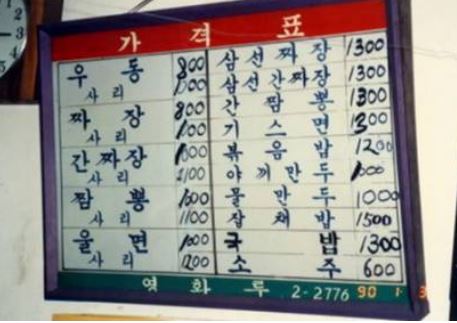 가격표
우동 800
사리 900
짜장 800
사리 1000
간짜장 1000
사리 1100
짬뽕 1000
사리 1100
울면 1000
사리 1200
삼선짜장 1300
삼선간짜장 1300
간짬뽕 1300
기스면 1300
볶음밥 1200
야끼만두 1000
물만두 1000
잡채밥 1500
국밥 1300
소주 600
영화루 2-2776
90 1 3